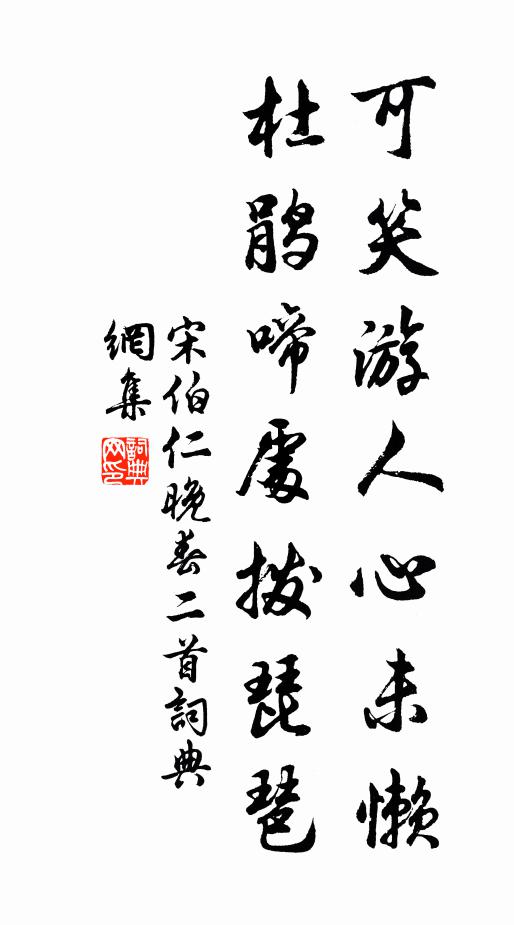 可笑游人心未懒
杜鹃啼處拨琵琶
宋伯仁晚春二首詞典
網集
詞典网印